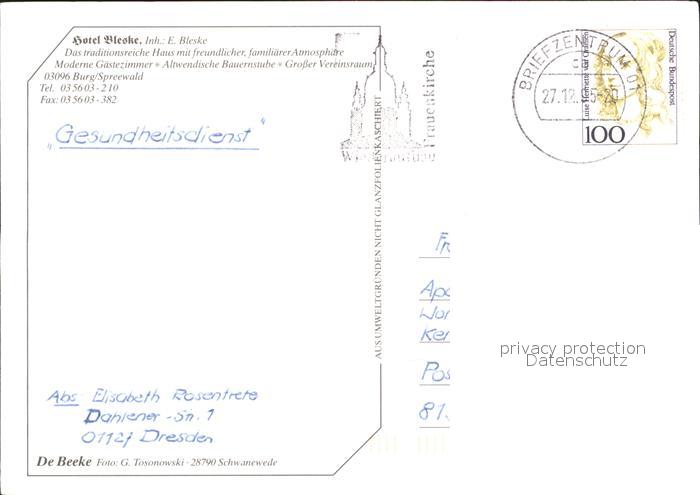 Hotel Bleske, Inh.: E. Bleske
Das traditionsreiche Haus mit freundlicher, familiärer Atmosphäre
Moderne Gästezimmer * Altwendische Bauernstube * Großer Vereinsraum
03096 Burg/Spreewald
Tel. 035603-210
Fax: 035603-382
„Gesundheitsdienst“
Abs. Elisabeth Rosentrete
Dahlener-Str. 1
01127 Dresden
De Beeke Foto: G. Tosonowski · 28790 Schwanewede
AUS UMWELTGRÜNDEN NICHT GLANZFOLIENKASCHIERT
Frauenkirche
BRIEFZENTRUM 01
27.12.
Deutsche Bundespost
100
Fr
Apo
Post
81
privacy protection
Datenschutz